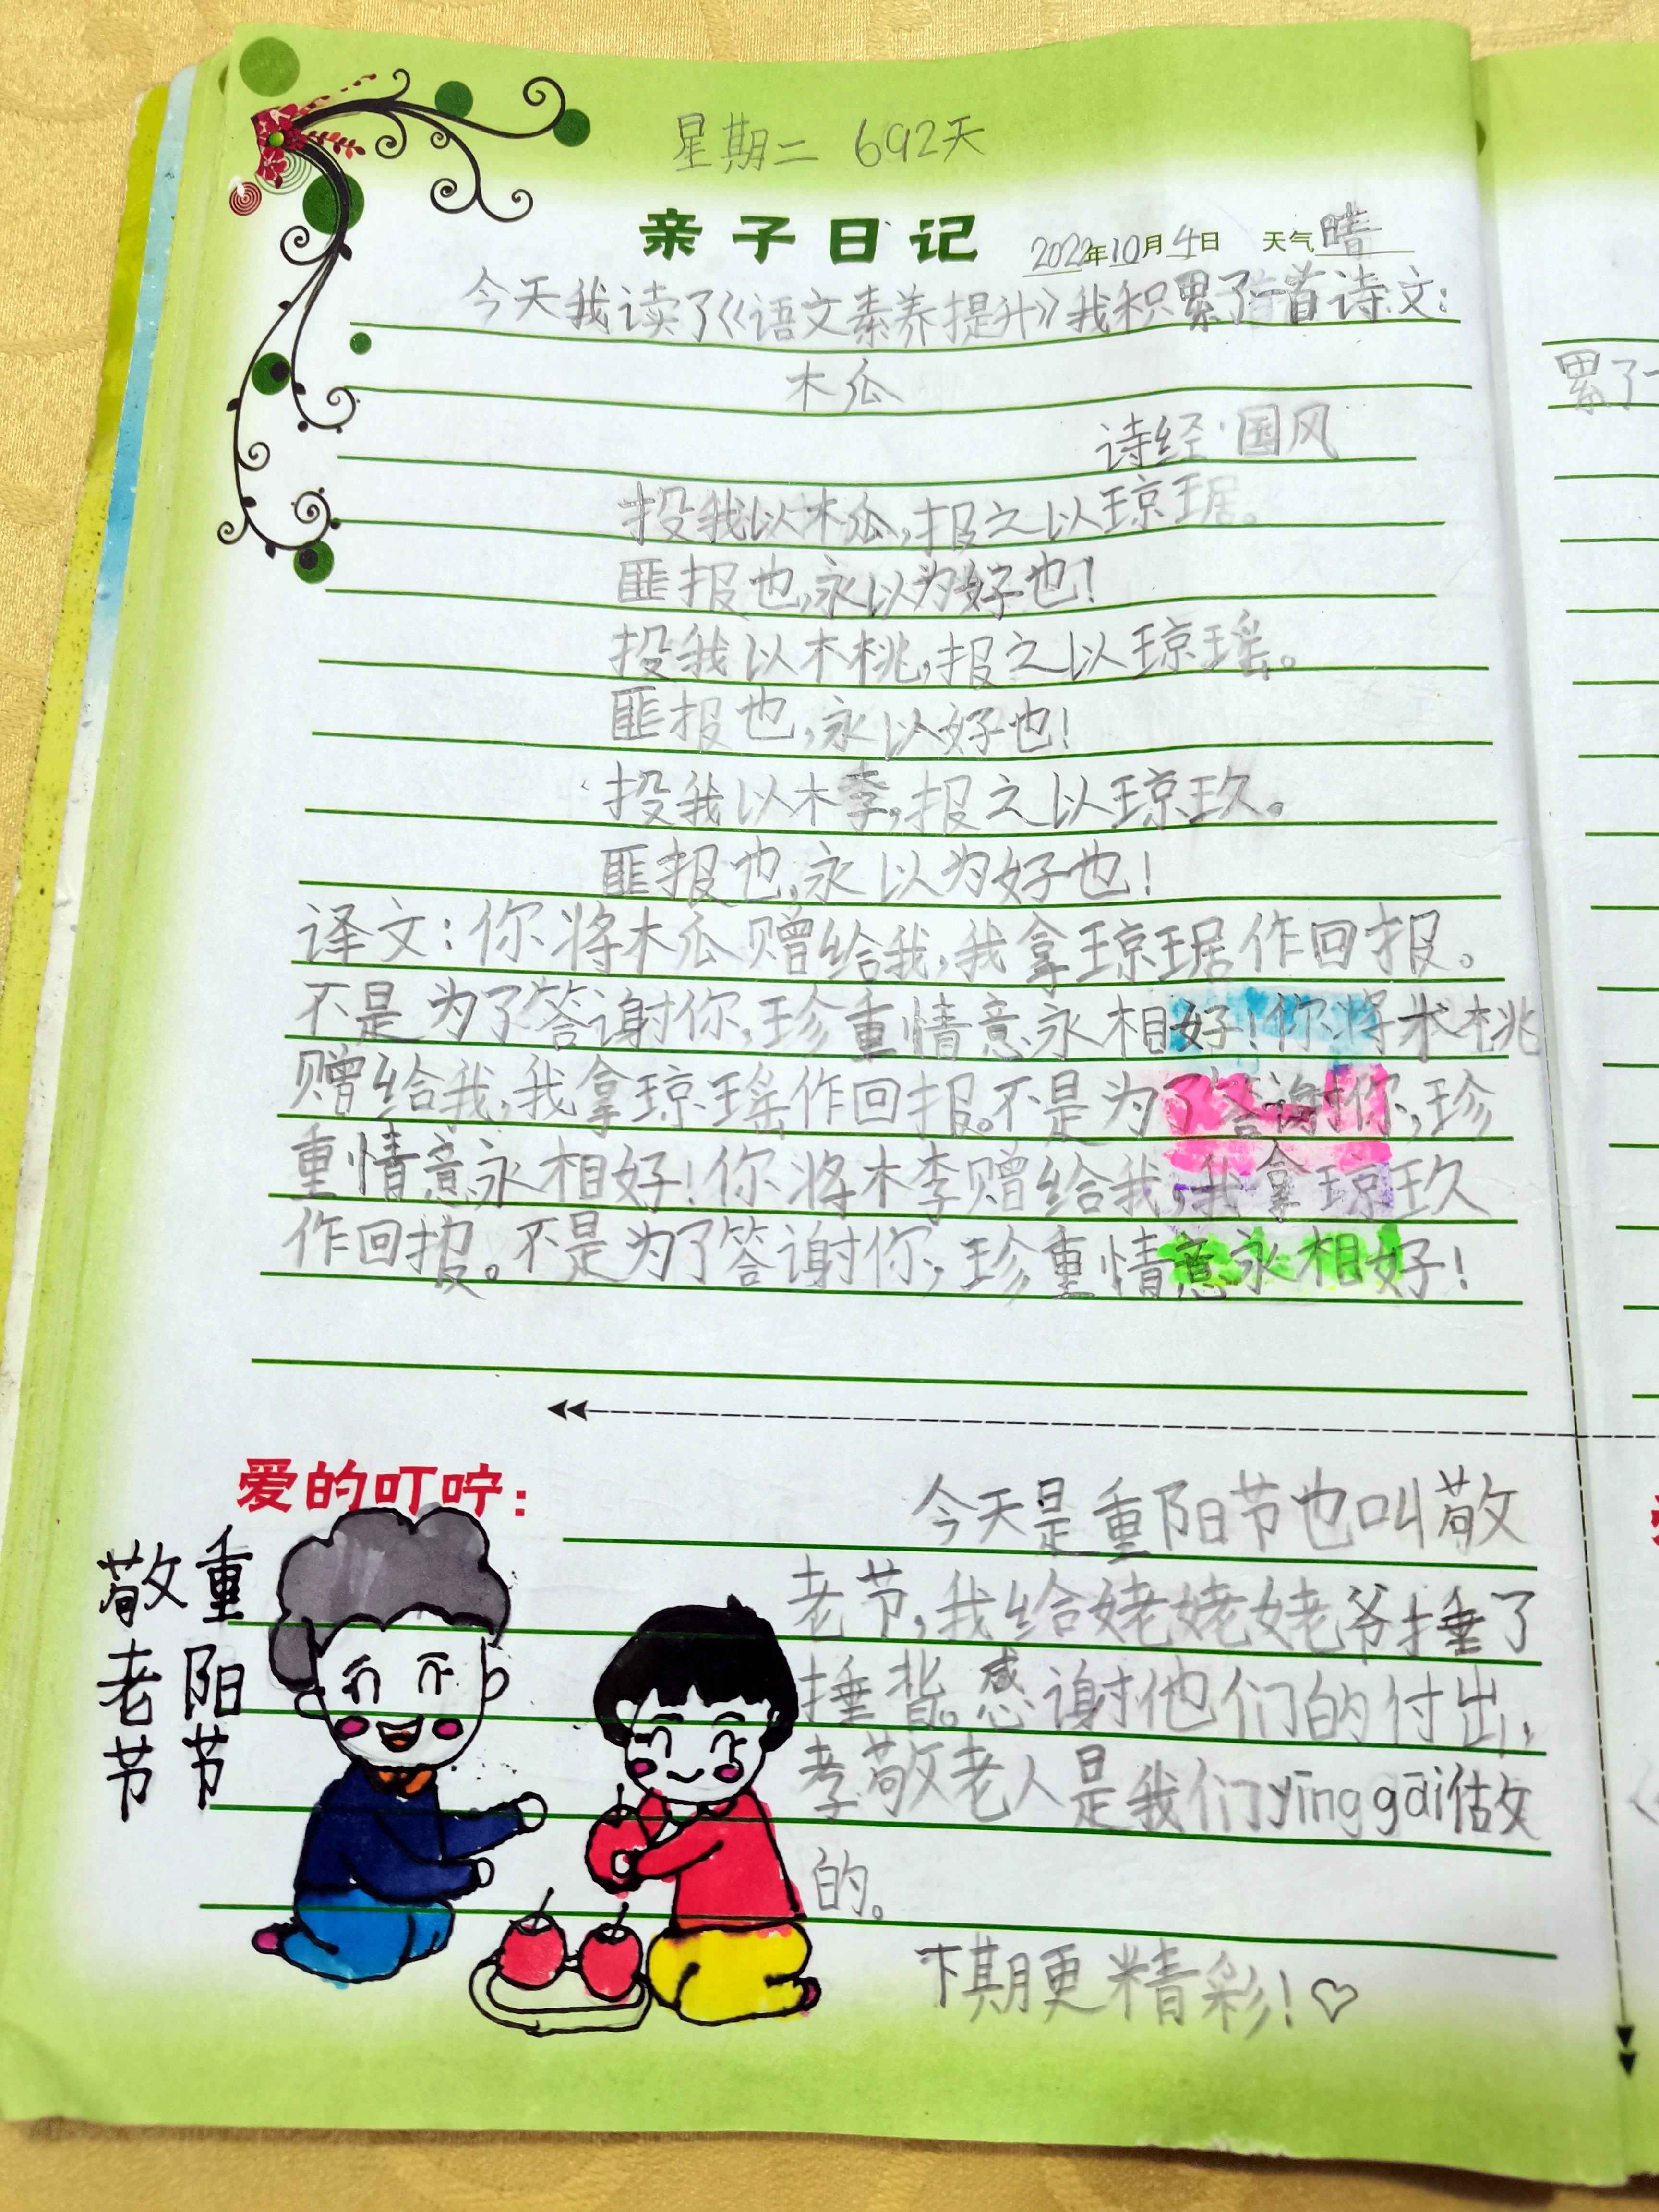 星期二 692天
亲子日记 2022年10月4日 天气晴
今天我读了《语文素养提升》我积累了一首诗文:
木瓜
诗经·国风
投我以木瓜,报之以琼琚。
匪报也,永以为好也!
投我以木桃,报之以琼瑶。
匪报也,永以好也!
投我以木李,报之以琼玖。
匪报也,永以为好也!
译文:你将木瓜赠给我,我拿琼琚作回报。
不是为了答谢你,珍重情意永相好!你将木桃
赠给我,我拿琼瑶作回报。不是为了答谢你,珍
重情意永相好!你将木李赠给我,我拿琼玖
作回报。不是为了答谢你,珍重情意永相好!
爱的叮咛:
今天是重阳节也叫敬
老节,我给姥姥姥爷捶了
捶背。感谢他们的付出,
孝敬老人是我们yīng gāi估做
的。
下期更精彩!♡
重阳节
敬老节
累了一